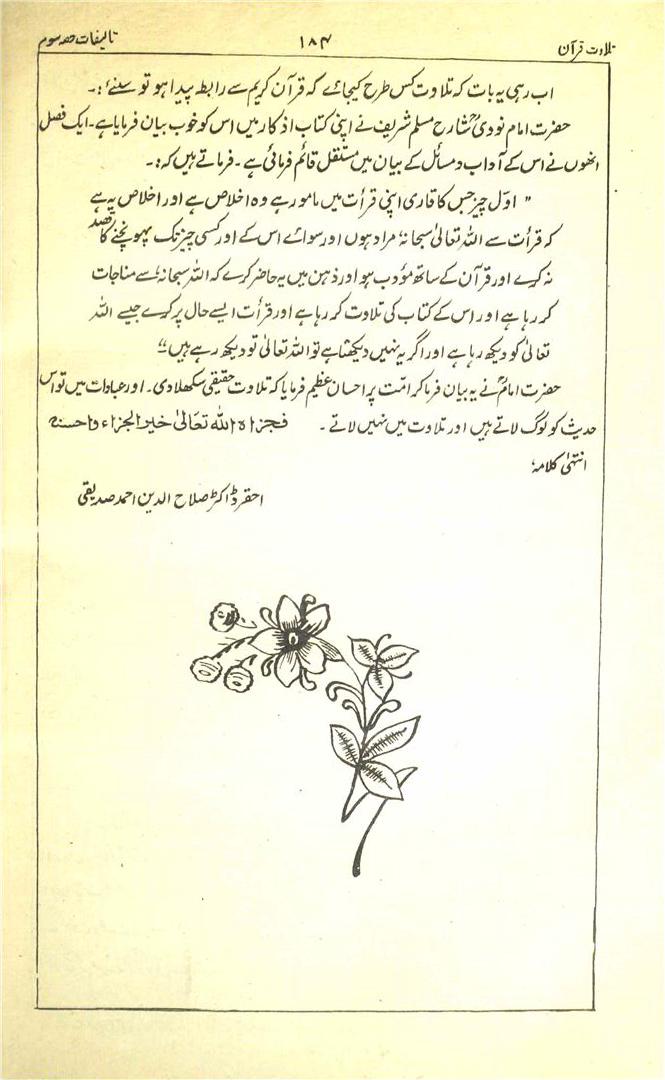 تلاوت قرآن
۱۸۴
تالیفات حصہ سوم
اب رہی یہ بات کہ تلاوت کس طرح کیجائے کہ قرآن کریم سے رابطہ پیدا ہو تو سنیئے :۔
حضرت امام نووی رح شارح مسلم شریف نے اپنی کتاب اذکار میں اس کو خوب بیان فرمایا ہے۔ ایک فصل
انھوں نے اس کے آداب و مسائل کے بیان میں مستقل قائم فرمائی ہے ۔ فرماتے ہیں کہ :۔
" اوّل چیز جس کا قاری اپنی قرأت میں مامور ہے وہ اخلاص ہے اور اخلاص یہ ہے
کہ قرأت سے اللہ تعالیٰ سبحانہٗ مراد ہوں اور سوائے اس کے اور کسی چیز تک پہونچنے کا قصد
نہ کرے اور قرآن کے ساتھ مؤدب ہو اور ذہن میں یہ حاضر کرے کہ اللہ سبحانہٗ سے مناجات
کر رہا ہے اور اس کے کتاب کی تلاوت کر رہا ہے اور قرأت ایسے حال پر کرے جیسے اللہ
تعالیٰ کو دیکھ رہا ہے اور اگر یہ نہیں دیکھتا ہے تو اللہ تعالیٰ تو دیکھ رہے ہیں "
حضرت امامؒ نے یہ بیان فرماکر امّت پر احسان عظیم فرمایا کہ تلاوت حقیقی سکھلا دی۔ اور عبادات میں تو اس
حدیث کو لوگ لاتے ہیں اور تلاوت میں نہیں لاتے ۔ فجزاہ اللہ تعالیٰ خیر الجزاء واحسنہ
انتہیٰ کلامہٗ
احقر ڈاکٹر صلاح الدین احمد صدیقی